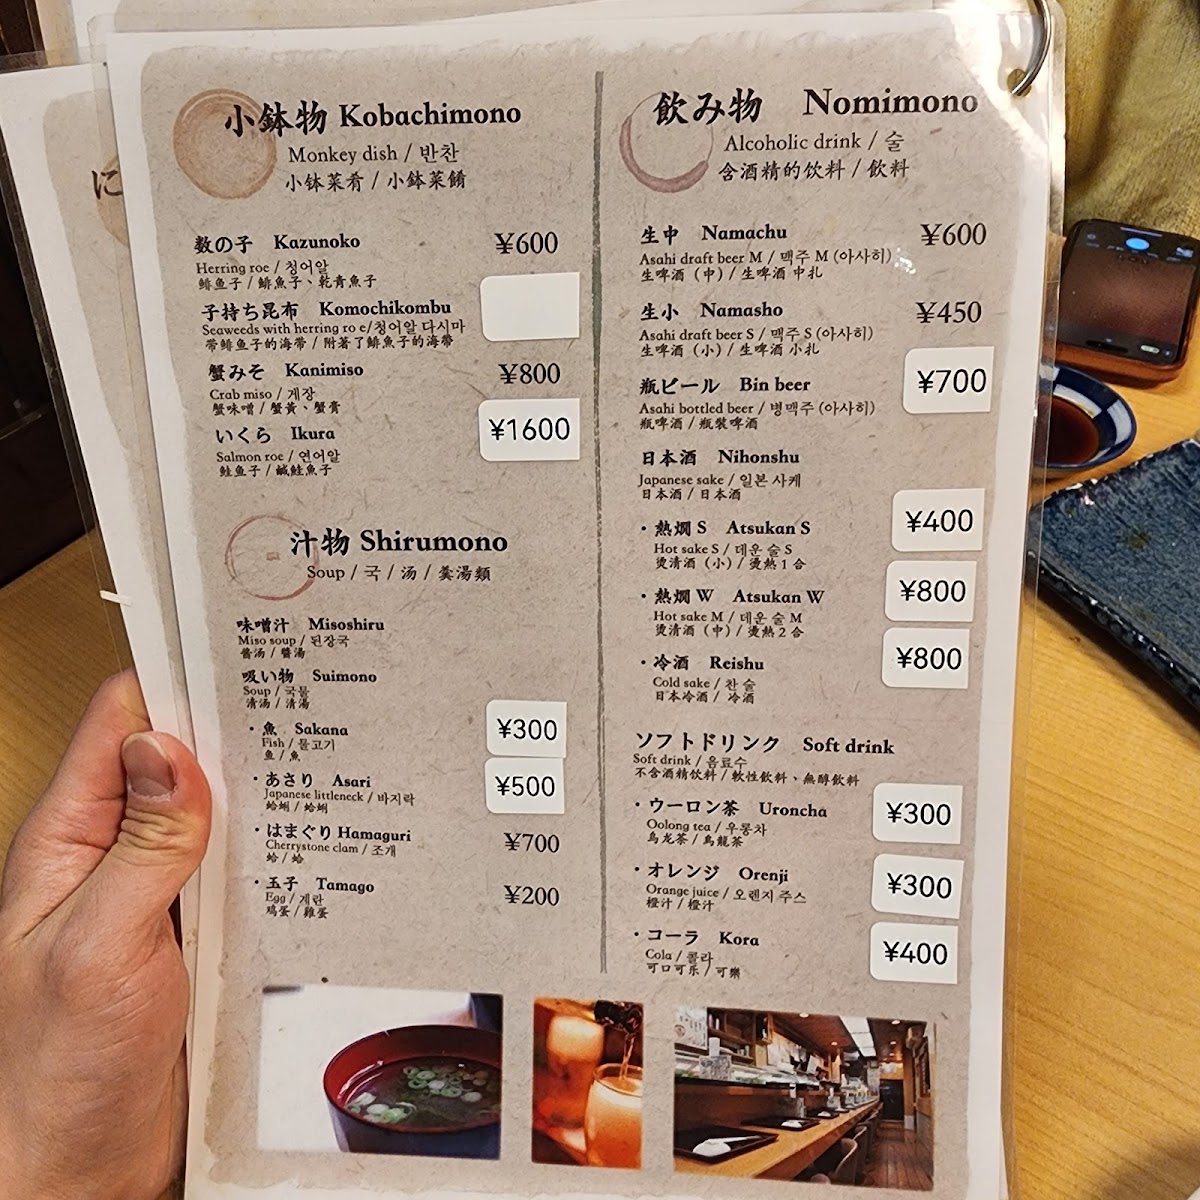 に
小鉢物 Kobachimono
Monkey dish / 반찬
小钵菜肴 / 小鉢菜餚
数の子 Kazunoko ¥600
Herring roe / 청어알
鲱鱼子 / 鯡魚子、乾青魚子
子持ち昆布 Komochikombu
Seaweeds with herring ro e/청어알 다시마
带鲱鱼子的海带 / 附著了鯡魚子的海帶
蟹みそ Kanimiso ¥800
Crab miso / 게장
蟹味噌 / 蟹黃、蟹膏
いくら Ikura ¥1600
Salmon roe / 연어알
鲑鱼子 / 鹹鮭魚子
汁物 Shirumono
Soup / 국 / 汤 / 羹湯類
味噌汁 Misoshiru
Miso soup / 된장국
酱汤 / 醬湯
吸い物 Suimono
Soup / 국물
清汤 / 清湯
・魚 Sakana ¥300
Fish / 물고기
鱼 / 魚
・あさり Asari ¥500
Japanese littleneck / 바지락
蛤蜊 / 蛤蜊
・はまぐり Hamaguri ¥700
Cherrystone clam / 조개
蛤 / 蛤
・玉子 Tamago ¥200
Egg / 계란
鸡蛋 / 雞蛋
飲み物 Nomimono
Alcoholic drink / 술
含酒精的饮料 / 飲料
生中 Namachu ¥600
Asahi draft beer M / 맥주 M (아사히)
生啤酒（中）/ 生啤酒 中扎
生小 Namasho ¥450
Asahi draft beer S / 맥주 S (아사히)
生啤酒（小）/ 生啤酒 小扎
瓶ビール Bin beer ¥700
Asahi bottled beer / 병맥주 (아사히)
瓶啤酒 / 瓶裝啤酒
日本酒 Nihonshu
Japanese sake / 일본 사케
日本酒 / 日本酒
・熱燗 S Atsukan S ¥400
Hot sake S / 데운 술 S
烫清酒（小）/ 燙熱 1 合
・熱燗 W Atsukan W ¥800
Hot sake M / 데운 술 M
烫清酒（中）/ 燙熱 2 合
・冷酒 Reishu ¥800
Cold sake / 찬 술
日本冷酒 / 冷酒
ソフトドリンク Soft drink
Soft drink / 음료수
不含酒精饮料 / 軟性飲料、無醇飲料
・ウーロン茶 Uroncha ¥300
Oolong tea / 우롱차
乌龙茶 / 烏龍茶
・オレンジ Orenji ¥300
Orange juice / 오렌지 주스
橙汁 / 橙汁
・コーラ Kora ¥400
Cola / 콜라
可口可乐 / 可樂